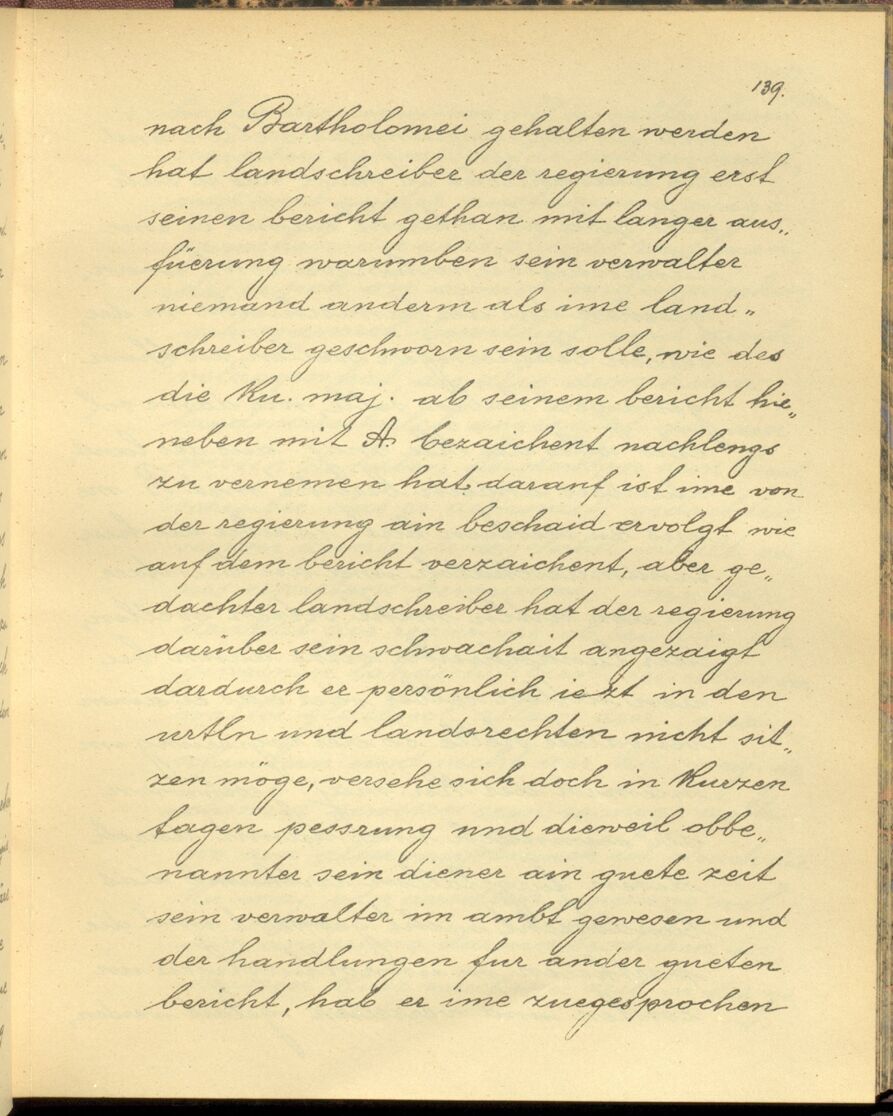 139.
nach Bartholomei gehalten werden
hat landschreiber der regierung erst
seinen bericht gethan mit langer aus„
füerung warumben sein verwalter
niemand anderm als ime land„
schreiber geschworn sein solle, wie des
die Ku. maj. ab seinem bericht hie„
neben mit A. bezaichent nachlengs
zu vernemen hat. darauf ist ime von
der regierung ain beschaid ervolgt wie
auf dem bericht verzaichent, aber ge„
dachter landschreiber hat der regierung
darüber sein schwachait angezaigt
dardurch er persönlich iezt in den
urtln und landsrechten nicht sit„
zen möge, versehe sich doch in kurzen
tagen pessrung und dieweil obbe„
nannter sein diener ain guete zeit
sein verwalter im ambt gewesen und
der handlungen fur ander gueten
bericht, hab er ime zuegesprochen